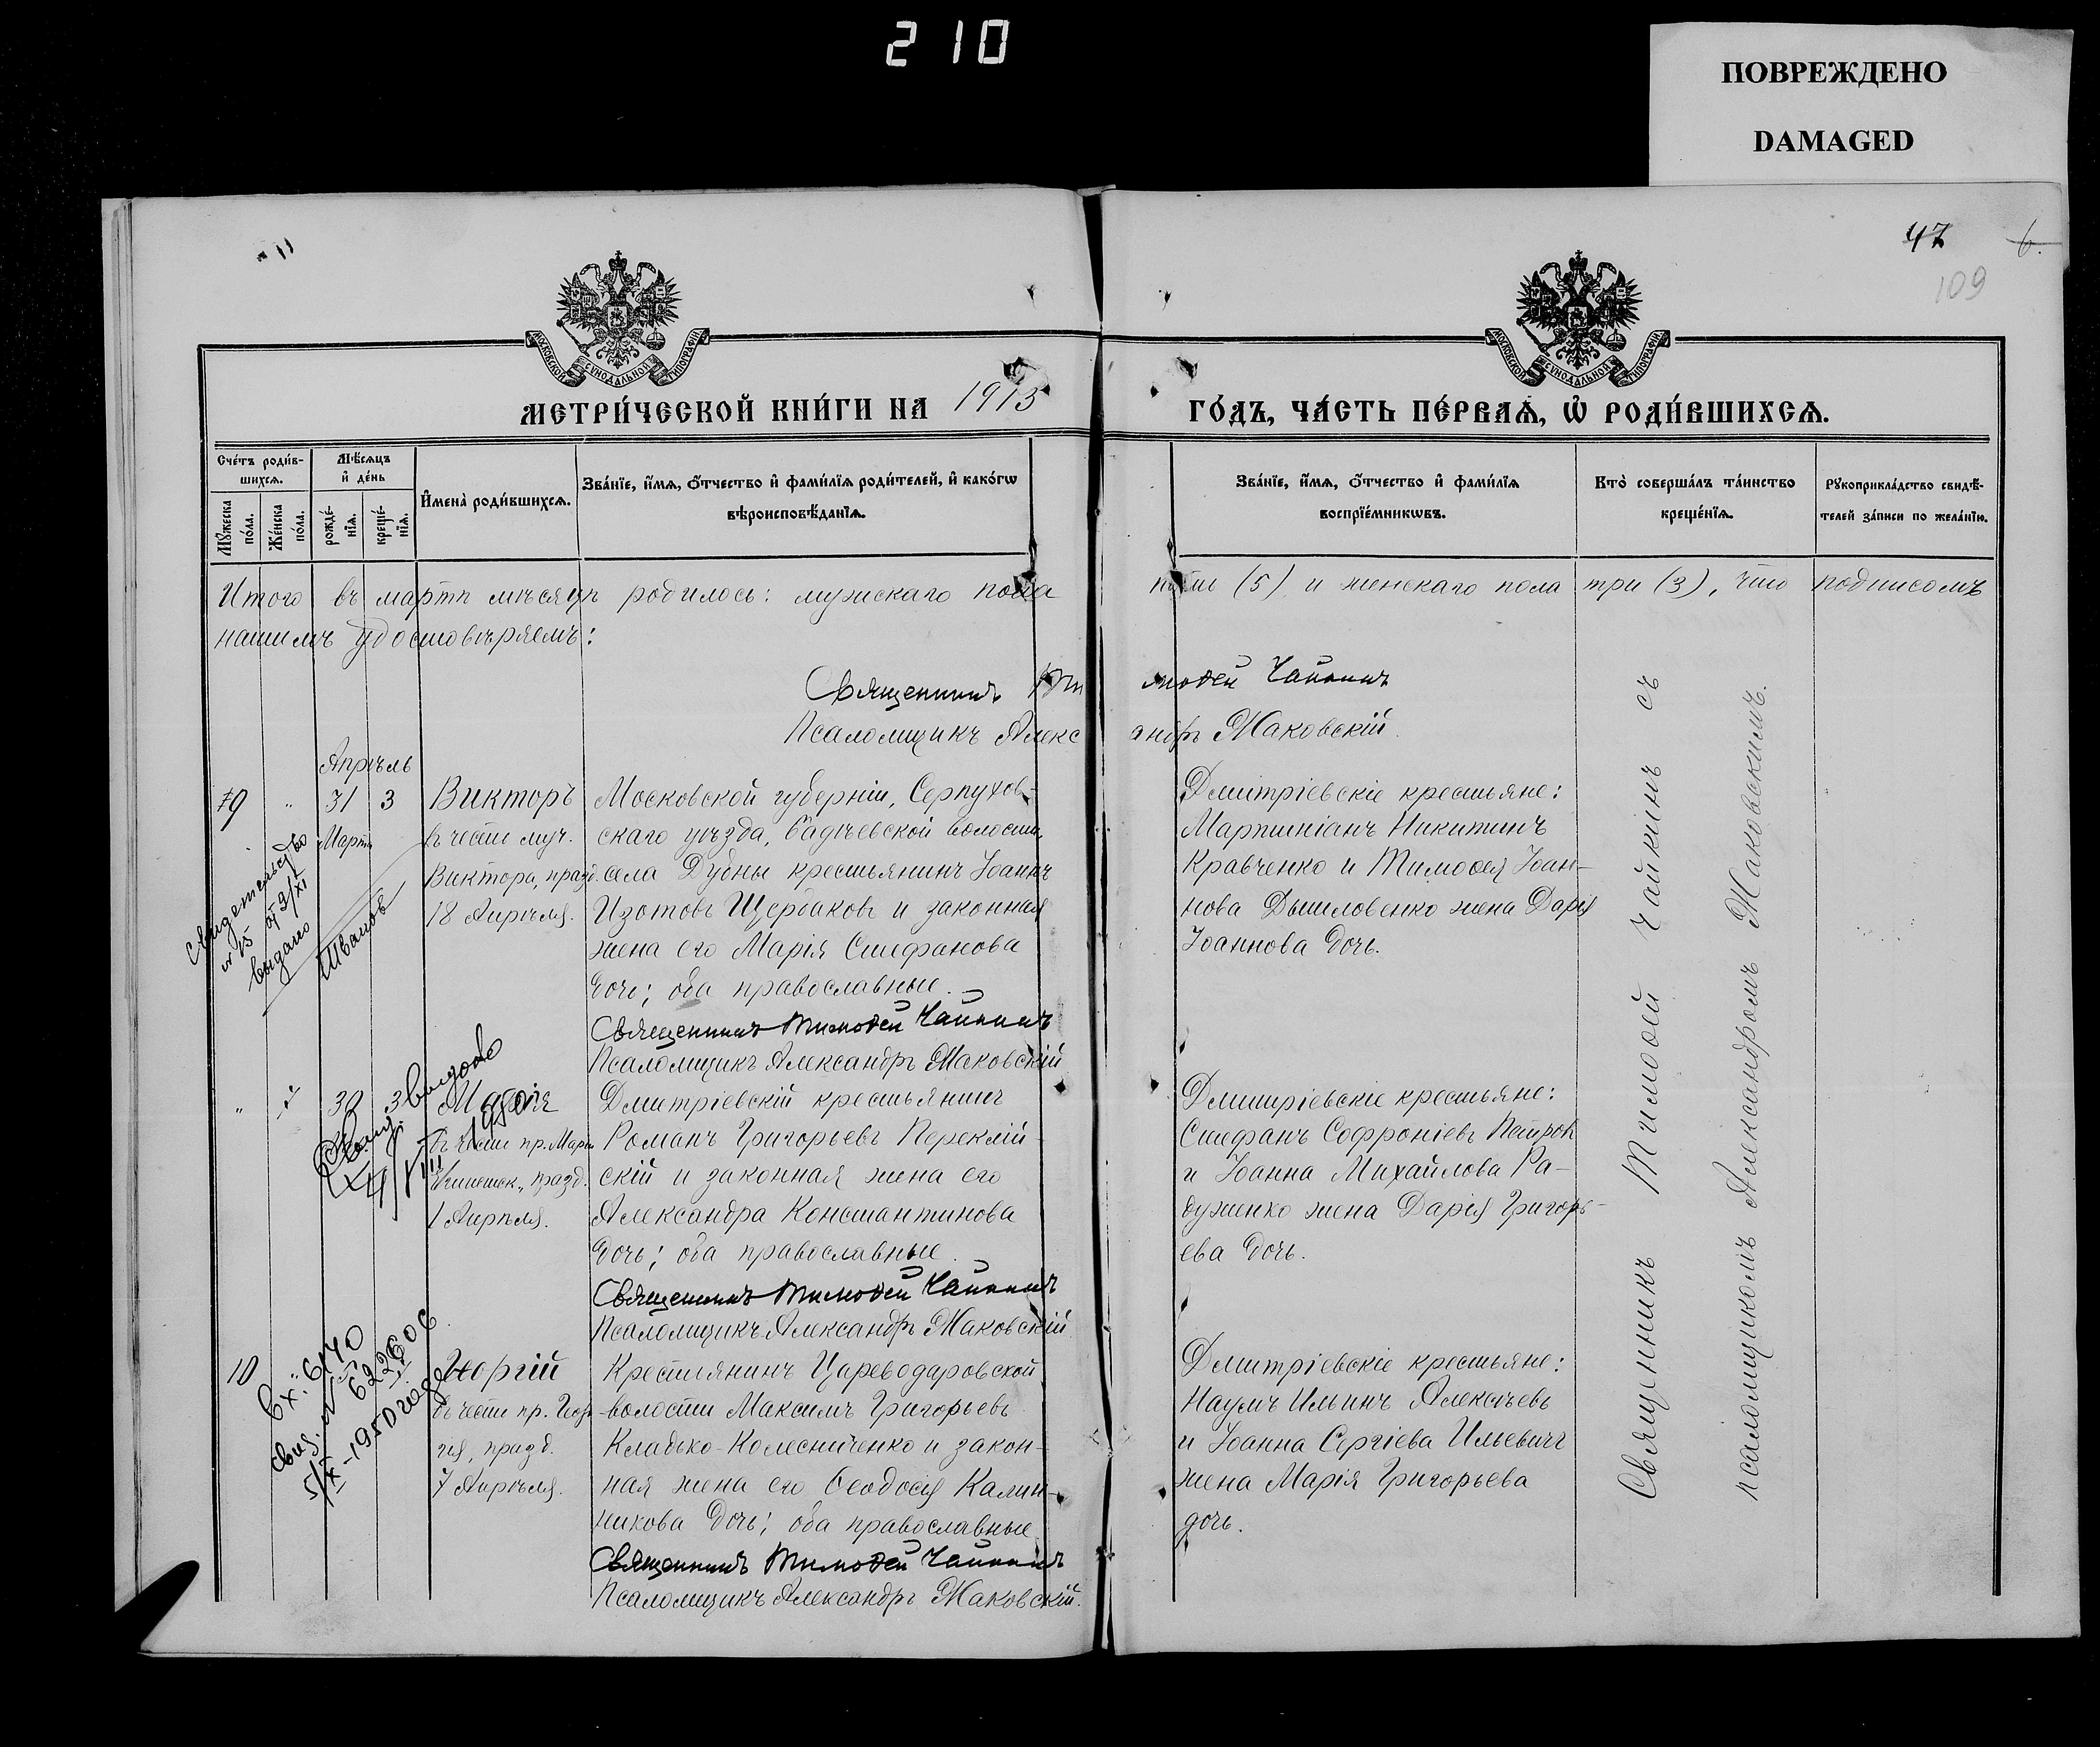 210
ПОВРЕЖДЕНО
DAMAGED
47
6.
109
МОСКОВСКОЙ СѴНОДАЛЬНОЙ ТИПОГРАФІИ
МОСКОВСКОЙ СѴНОДАЛЬНОЙ ТИПОГРАФІИ
МЕТРИ́ЧЕСКОЙ КНИ́ГИ НА 1913 ГО́ДЪ, ЧА́СТЬ ПЕ́РВАѦ, Ѡ҆ РОДИ́ВШИХСѦ.
Сче́тъ роди́в-
шихсѧ.
Мѣ́сѧцъ
и҆ де́нь
Мꙋжеска по́ла.
Же́нска по́ла.
рожде́-
нїѧ.
креще́-
нїѧ.
И҆мена̀ роди́вшихсѧ.
Зва́нїе, и҆́мѧ, ѻ҆́тчество и҆ фами́лїѧ роди́телей, и҆ како́гѡ
вѣроисповѣ́данїѧ.
Зва́нїе, и҆́мѧ, ѻ҆́тчество и҆ фами́лїѧ
воспрїе́мникѡвъ.
Кто̀ соверша́лъ та́инство
креще́нїѧ.
Рꙋкоприкла́дство свидѣ́-
телей за́писи по жела́нїю.
Итого въ мартѣ мѣсяцѣ родилось: мужскаго пола пять (5) и женскаго пола три (3), что подписомъ
нашимъ удостовѣряемъ:
Священникъ Тимоѳей Чайкинъ
Псаломщикъ Александръ Маковскій.
Апрѣль
9 " 31 3
Мартъ
Викторъ
въ честь муч.
Виктора, празд.
18 Апрѣля.
Московской губерніи, Серпухов-
скаго уѣзда, Бадѣевской волости,
села Дубны крестьянинъ Іоаннъ
Изотовъ Щербаковъ и законная
жена его Марія Стефанова
дочь; оба православные.
Священникъ Тимоѳей Чайкинъ
Псаломщикъ Александръ Маковскій
Дмитріевскіе крестьяне:
Мартиніанъ Никитинъ
Кравченко и Тимоѳея Іоан-
нова Дышловенко жена Дарія
Іоаннова дочь.
Свидетельство
№ 15 от 2/XI
выдано
Иванов
" 30 3
Марія
въ честь пр. Маріи
Египетск., празд.
1 Апрѣля.
Дмитріевскій крестьянинъ
Романъ Григорьевъ Переклій-
скій и законная жена его
Александра Константинова
дочь; оба православные.
Священникъ Тимоѳей Чайкинъ
Псаломщикъ Александръ Маковскій
Дмитріевскіе крестьяне:
Стефанъ Софроніевъ Петров
и Іоанна Михайлова Ра-
дуженко жена Дарія Григорь-
ева дочь.
выдано
10
Георгій
въ честь пр. Геор-
гія, празд.
7 Апрѣля.
Крестьянинъ Цареводаровской
волости Максимъ Григорьевъ
Кладько-Колесниченко и закон-
ная жена его Ѳеодосія Калин-
никова дочь; оба православные
Священникъ Тимоѳей Чайкинъ
Псаломщикъ Александръ Маковскій.
Дмитріевскіе крестьяне:
Наумъ Ильинъ Алексѣевъ
и Іоанна Сергіева Ильевичъ
жена Марія Григорьева
дочь.
вх. 6170
свид. №
5/X-1950 года
Священникъ Тимоѳей Чайкинъ съ
псаломщикомъ Александромъ Маковскимъ.